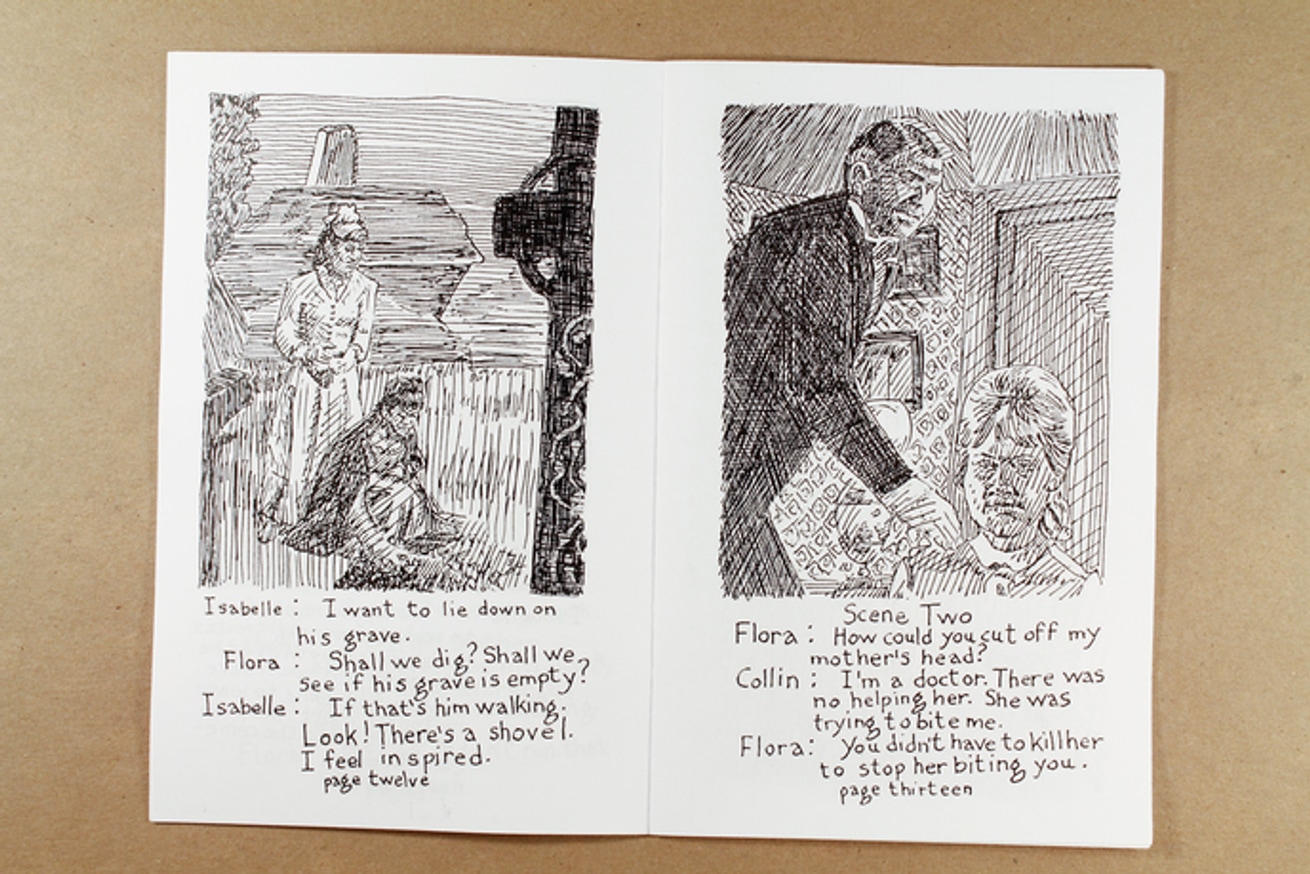 Isabelle : I want to lie down on
his grave.
Flora : Shall we dig? Shall we
see if his grave is empty?
Isabelle : If that's him walking.
Look! There's a shovel.
I feel inspired.
page twelve
Scene Two
Flora : How could you cut off my
mother's head?
Collin : I'm a doctor. There was
no helping her. She was
trying to bite me.
Flora : You didn't have to kill her
to stop her biting you.
page thirteen